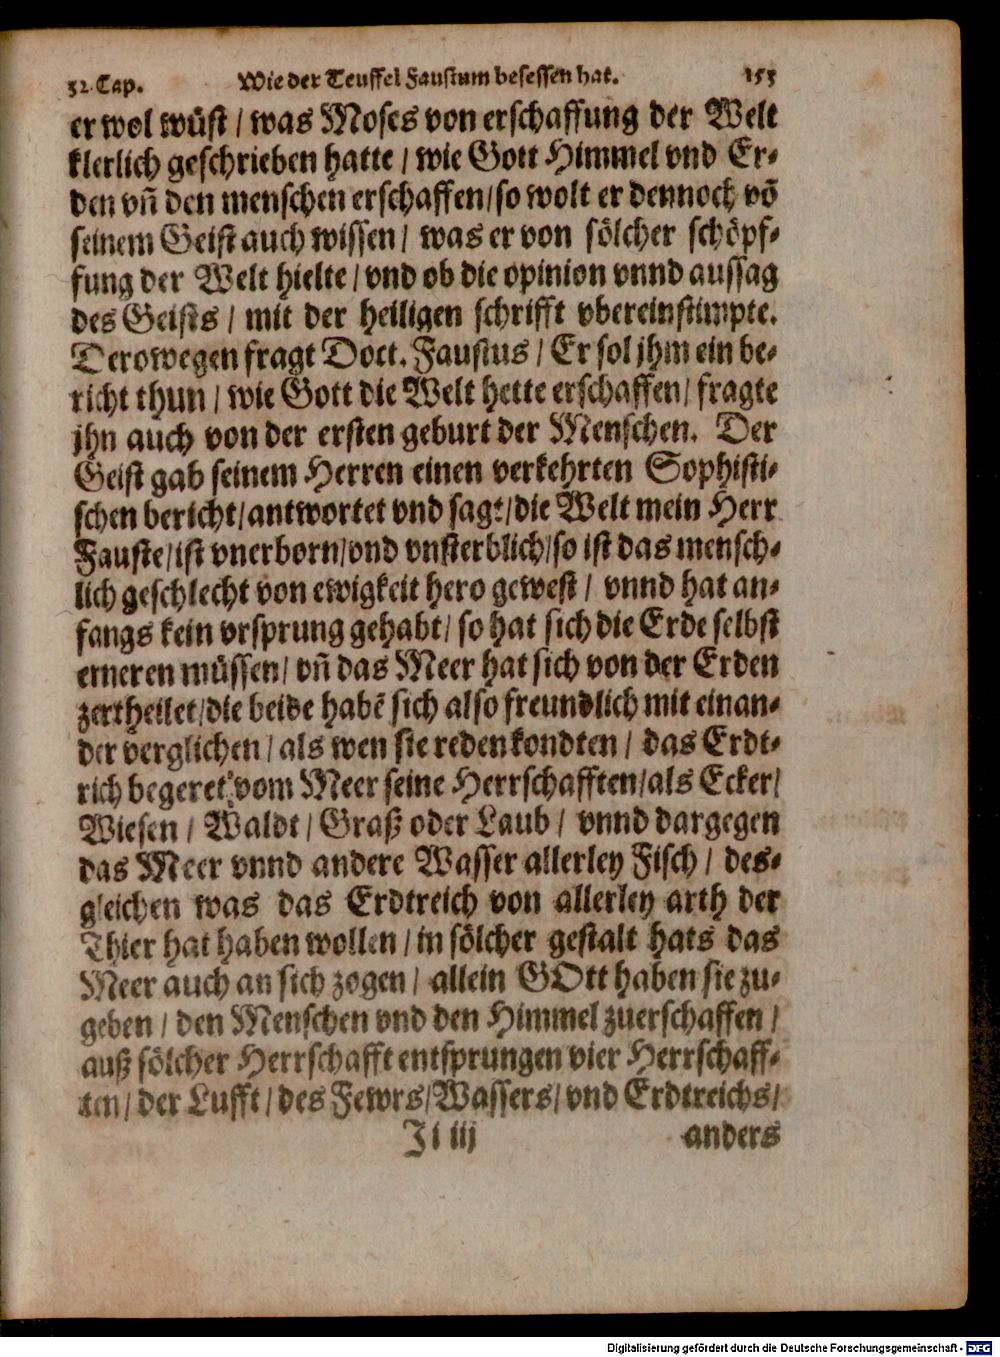 32. Cap. Wie der Teuffel Faustum besessen hat. 153
er wol wüst / was Moses von erschaffung der Welt
klerlich geschrieben hatte / wie Gott Himmel vnd Er-
den vñ den menschen erschaffen / so wolt er dennoch võ
seinem Geist auch wissen / was er von sölcher schöpf-
fung der Welt hielte / vnd ob die opinion vnnd aussag
des Geists / mit der heiligen schrifft vbereinstimpte.
Derowegen fragt Doct. Faustus / Er sol jhm ein be-
richt thun / wie Gott die Welt hette erschaffen / fragte
jhn auch von der ersten geburt der Menschen. Der
Geist gab seinem Herren einen verkehrten Sophisti-
schen bericht / antwortet vnd sagt / die Welt mein Herr
Fauste / ist vnerborn / vnd vnsterblich / so ist das mensch-
lich geschlecht von ewigkeit hero gewest / vnnd hat an-
fangs kein vrsprung gehabt / so hat sich die Erde selbst
erneren müssen / vñ das Meer hat sich von der Erden
zertheilet / die beide habẽ sich also freundlich mit einan-
der verglichen / als wen sie reden kondten / das Erdt-
rich begeret vom Meer seine Herrschafften / als Ecker /
Wiesen / Waldt / Graß oder Laub / vnnd dargegen
das Meer vnnd andere Wasser allerley Fisch / des-
gleichen was das Erdtreich von allerley arth der
Thier hat haben wollen / in sölcher gestalt hats das
Meer auch an sich zogen / allein GOtt haben sie zu-
geben / den Menschen vnd den Himmel zuerschaffen /
auß sölcher Herrschafft entsprungen vier Herrschaff-
ten / der Lufft / des Fewrs / Wassers / vnd Erdtreichs /
Ji iij anders
Digitalisierung gefördert durch die Deutsche Forschungsgemeinschaft - DFG